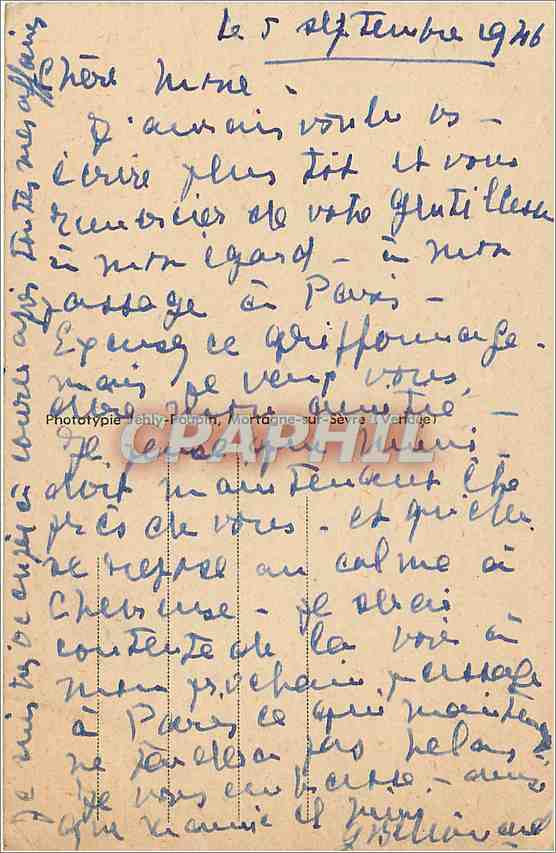 Le 5 septembre 1946
Chère
J'aurais voulu vs
écrire plus tôt et vous
remercier de votre gentillesse
à mon égard - à mon
passage à Paris -
Excusez ce griffonnage.
mais je veux vous
dire amitié -
Phototypie Jehly-Poupin, Mortagne-sur-Sèvre (Vendée)
CPAPHIL
Je pense que
doit maintenant être
près de vous - et qu'elle
se repose au calme à
Chevreuse - je serai
contente de la voir à
mon prochain passage
à Paris ce qui maintenant
ne tardera pas
Je vous embrasse - ainsi
que et
Je suis très occupée à courir après toutes mes affaires